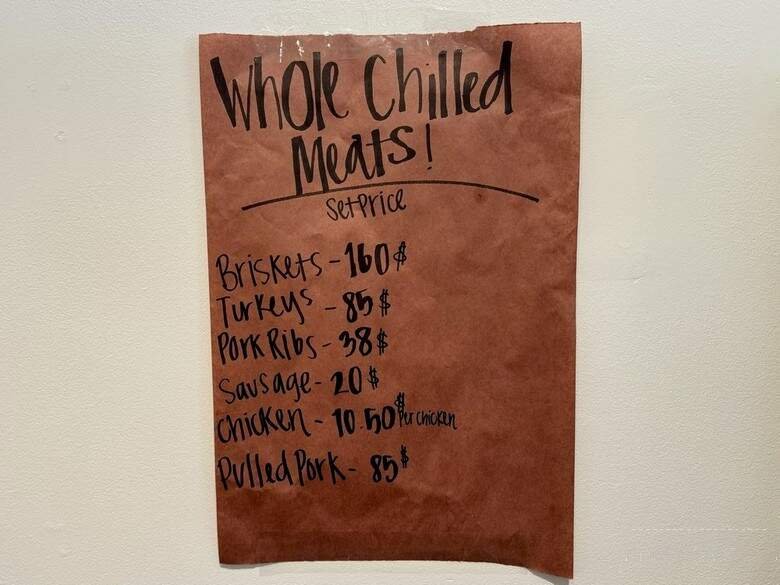 Whole Chilled
Meats!
Set Price
Briskets - 160$
Turkeys - 85$
Pork Ribs - 38$
Sausage - 20$
Chicken - 10.50$ Per Chicken
Pulled Pork - 85$